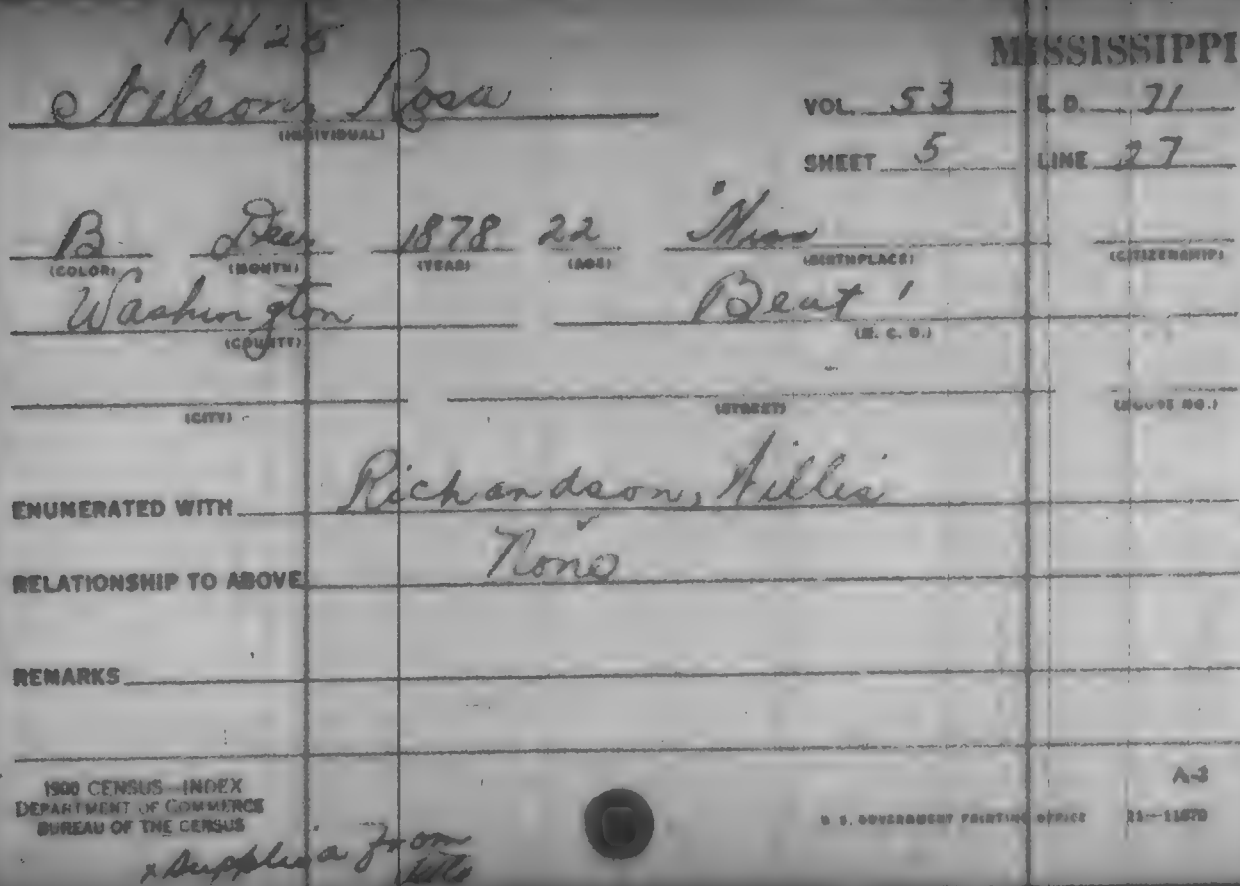 N425
MISSISSIPPI
Nelson, Rosa
(INDIVIDUAL)
VOL. 53 E. D. 71
SHEET 5 LINE 27
B Dec 1878 22 Miss
(COLOR) (MONTH) (YEAR) (AGE) (BIRTHPLACE) (CITIZENSHIP)
Washington Beat 1
(COUNTY) (M. C. D.)
(CITY) (STREET) (HOUSE NO.)
ENUMERATED WITH Richardson, Willis
RELATIONSHIP TO ABOVE None
REMARKS
1900 CENSUS—INDEX
DEPARTMENT OF COMMERCE
BUREAU OF THE CENSUS
A-3
U. S. GOVERNMENT PRINTING OFFICE
from